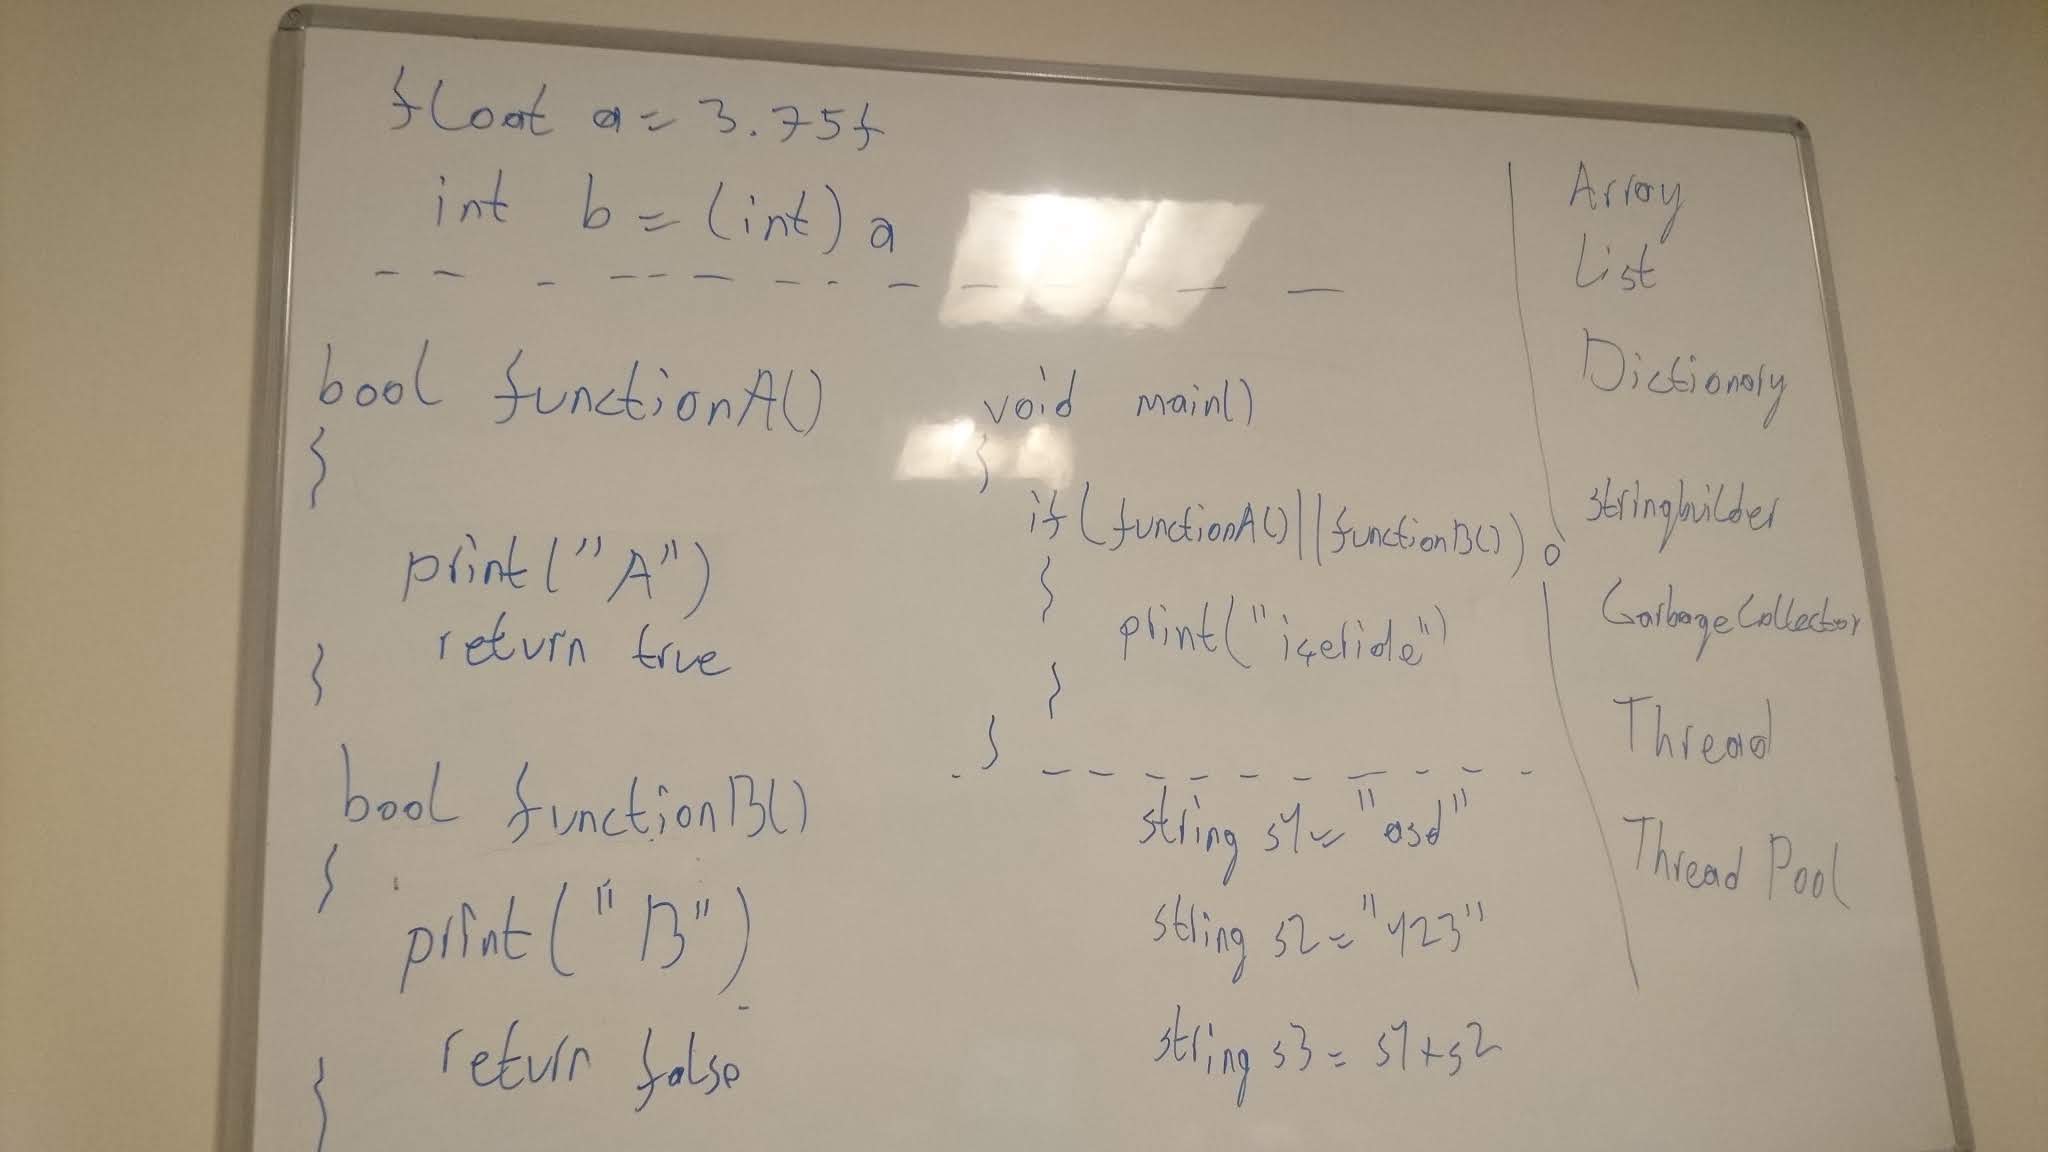 float a = 3.75f
int b = (int) a
bool functionA()
{
print("A")
return true
}
bool functionB()
{
print("B")
return false
}
void main()
{
if (functionA() || functionB())
{
print("içeride")
}
}
string s1 = "asd"
string s2 = "123"
string s3 = s1 + s2
Array
List
Dictionary
stringbuilder
GarbageCollector
Thread
Thread Pool